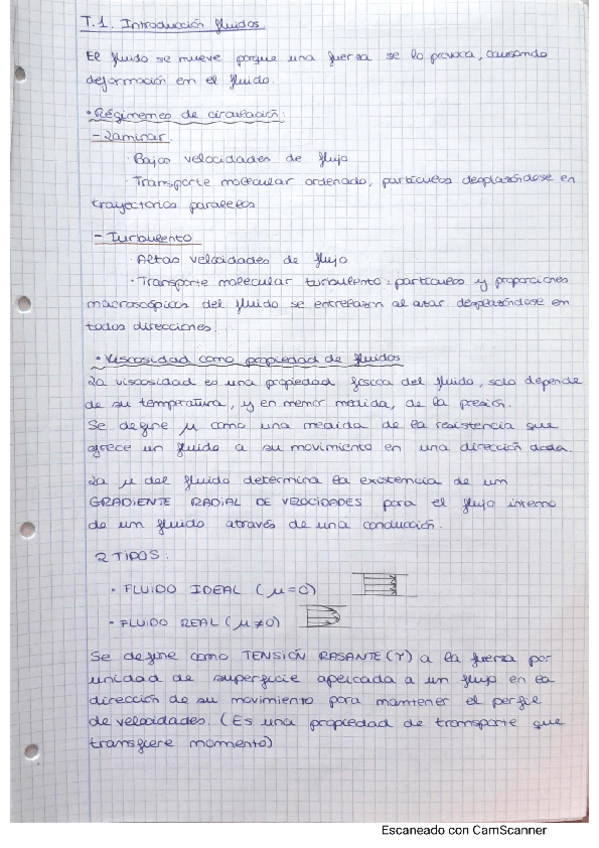 T.1. Introducción fluidos.
El fluido se mueve porque una fuerza se lo provoca, causando
deformación en el fluido.
• Régimenes de circulación:
- Laminar
· Bajas velocidades de flujo
· Transporte molecular ordenado, partículas desplazándose en
trayectorias paralelas
- Turbulento
· Altas velocidades de flujo
· Transporte molecular turbulento: partículas y proporciones
macroscópicas del fluido se entrelazan al azar desplazándose en
todas direcciones.
• Viscosidad como propiedad de fluidos
La viscosidad es una propiedad física del fluido, solo depende
de su temperatura, y en menor medida, de la presión.
Se define μ como una medida de la resistencia que
ofrece un fluido a su movimiento en una dirección dada.
La μ del fluido determina la existencia de un
GRADIENTE RADIAL DE VELOCIDADES para el flujo interno
de un fluido através de una conducción.
2 TIPOS:
• FLUIDO IDEAL (μ=0)
• FLUIDO REAL (μ≠0)
Se define como TENSIÓN RASANTE (Υ) a la fuerza por
unidad de superficie aplicada a un flujo en la
dirección de su movimiento para mantener el perfil
de velocidades. (Es una propiedad de transporte que
transfiere momento)
Escaneado con CamScanner